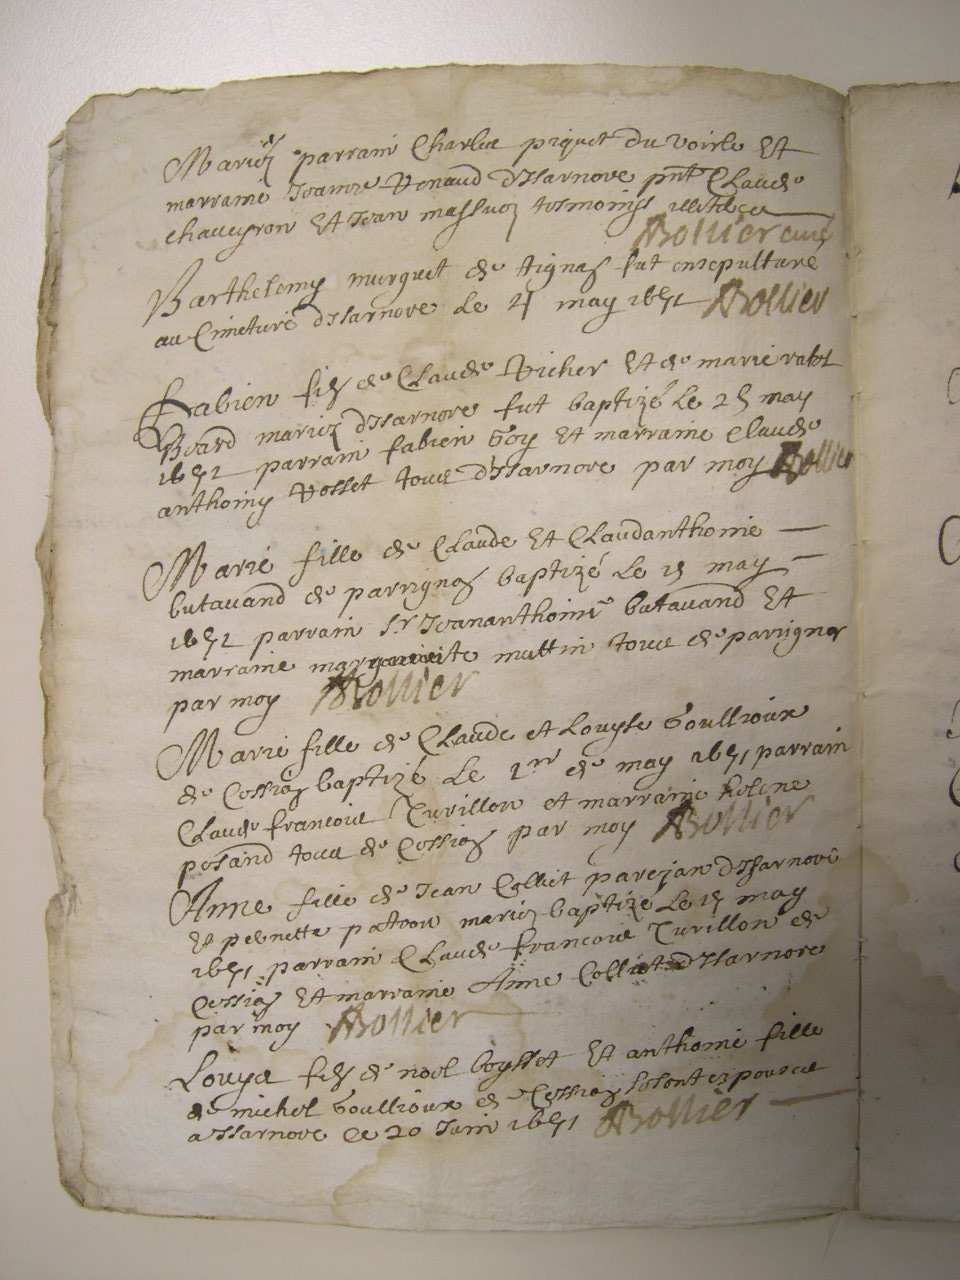 Mariez parrain Charles piquet du voirle Et
marraine Jeanne Venaud d'Isarnore pnt Claude
chaveyron Et Jean massuoz tesmoings
ABollier curé
Barthelemy murguet de tignas fut ensepulturé
au Cimetiere d'Isarnore le 4 may 1651 ABollier
Fabien fils de Claude Vicher Et de marie rabot
Beard mariez d'Isarnore fut baptizé le 25 may
1651 parrain fabien Goy Et marraine Claude
anthoiny Vosset tous d'Isarnore par moy ABollier
Marie fille de Claude Et Claudanthoinie
butavand de parrignas baptizé le 15 may
1651 parrain Sr Jeananthoine butavand Et
marraine marguerite muttin tous de parrignas
par moy ABollier
Marie fille de Claude et Louyse Goullioux
de Cessias baptizé le 1er de may 1651 parrain
Claude francois Turillon et marraine heline
pesand tous de Cessias par moy ABollier
Anne fille de Jean Colliet parejan d'Isarnore
Et pernette patron mariez baptizé le 15 may
1651 parrain Claude francois Turillon de
Cessias Et marraine Anne Colliet d'Isarnore
par moy ABollier
Louys fils de noel boysset Et anthoinie fille
de michel Goullioux de Cessias se sont espousés
a Isarnore le 20 Juin 1651 ABollier